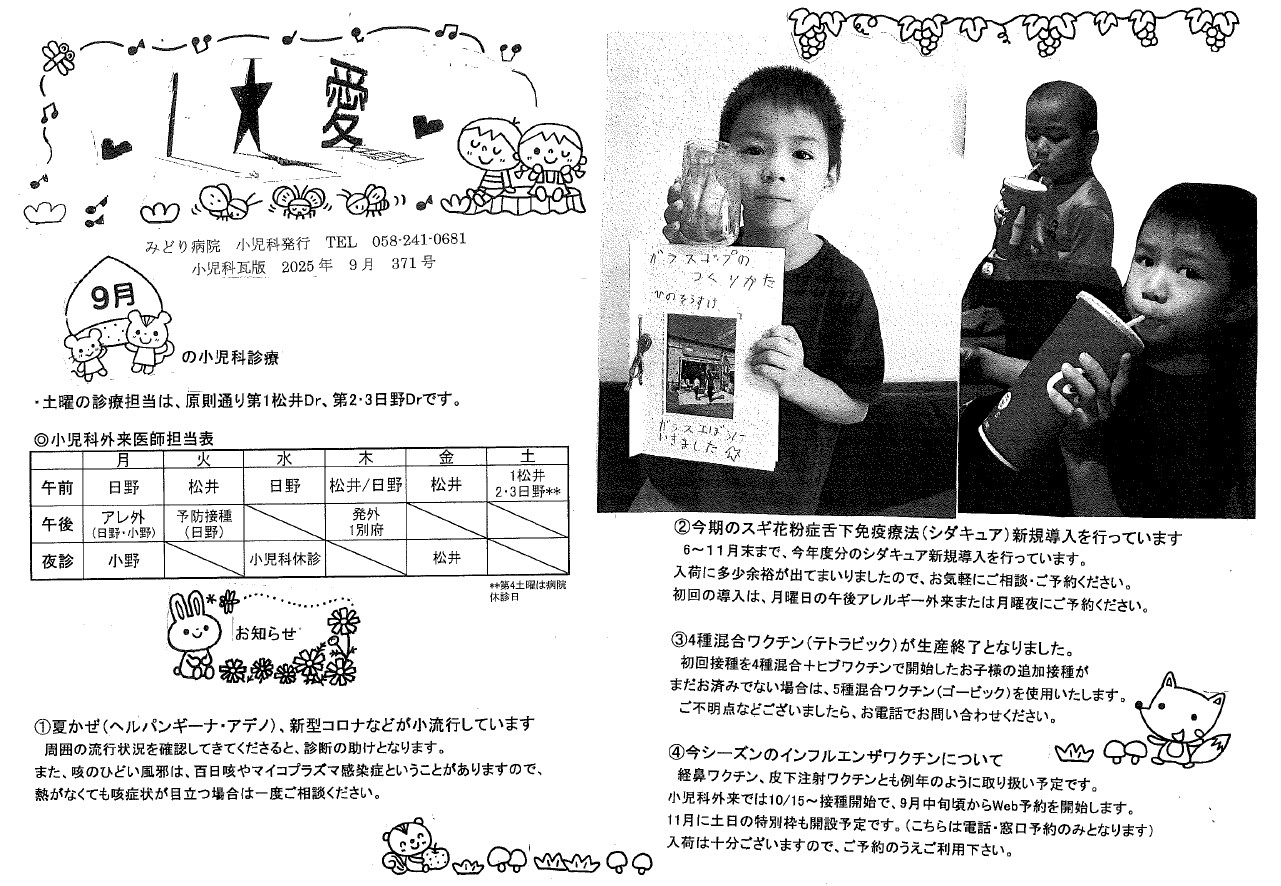 |★愛
みどり病院 小児科発行 TEL 058-241-0681
小児科瓦版 2025年 9月 371号
9月
の小児科診療
・土曜の診療担当は、原則通り第1松井Dr、第2・3日野Drです。
◎小児科外来医師担当表
月 火 水 木 金 土
午前 日野 松井 日野 松井/日野 松井 1松井
2・3日野**
午後 アレ外 予防接種 発外
(日野・小野) (日野) 1別府
夜診 小野 小児科休診 松井
**第4土曜は病院
休診日
お知らせ
①夏かぜ(ヘルパンギーナ・アデノ)、新型コロナなどが小流行しています
周囲の流行状況を確認してきてくださると、診断の助けとなります。
また、咳のひどい風邪は、百日咳やマイコプラズマ感染症ということがありますので、
熱がなくても咳症状が目立つ場合は一度ご相談ください。
ガラスコップの
つくりかた
ひのそうすけ
ガラスこうぼうに
いきました
②今期のスギ花粉症舌下免疫療法(シダキュア)新規導入を行っています
6~11月末まで、今年度分のシダキュア新規導入を行っています。
入荷に多少余裕が出てまいりましたので、お気軽にご相談・ご予約ください。
初回の導入は、月曜日の午後アレルギー外来または月曜夜にご予約ください。
③4種混合ワクチン(テトラビック)が生産終了となりました。
初回接種を4種混合+ヒブワクチンで開始したお子様の追加接種が
まだお済みでない場合は、5種混合ワクチン(ゴービック)を使用いたします。
ご不明点などございましたら、お電話でお問い合わせください。
④今シーズンのインフルエンザワクチンについて
経鼻ワクチン、皮下注射ワクチンとも例年のように取り扱い予定です。
小児科外来では10/15~接種開始で、9月中旬頃からWeb予約を開始します。
11月に土日の特別枠も開設予定です。(こちらは電話・窓口予約のみとなります)
入荷は十分ございますので、ご予約のうえご利用下さい。